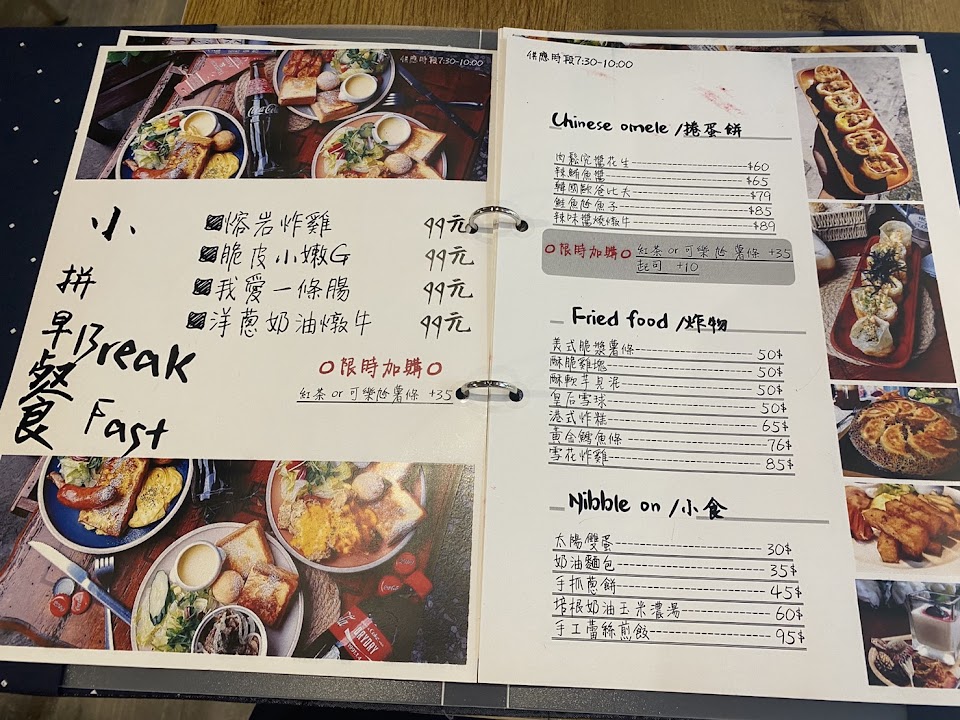 供應時段7:30-10:00
Coca-Cola
小拼早餐
Break
Fast
熔岩炸雞 99元
脆皮小嫩G 99元
我愛一條腸 99元
洋蔥奶油燉牛 99元
限時加購
紅茶 or 可樂
薯條 +35
供應時段7:30-10:00
Chinese omele /捲蛋餅
肉鬆 醬花生 $60
辣鮪魚醬 $65
韓國歐爸比夫 $79
鮭魚 魚子 $85
辣味醬燒燉牛 $89
限時加購 紅茶 or 可樂 薯條 +35
起司 +10
Fried food /炸物
美式脆漿薯條 50$
酥脆雞塊 50$
酥軟芋見泥 50$
皇后雪球 50$
港式炸糕 65$
黃金鱈魚條 76$
雪花炸雞 85$
Nibble on /小食
太陽雙蛋 30$
奶油麵包 35$
手抓蔥餅 45$
培根奶油玉米濃湯 60$
手工蕾絲煎餃 95$